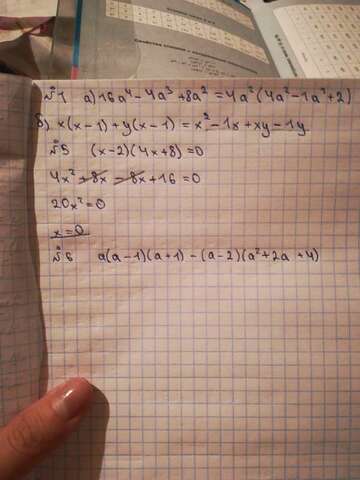 №1 а) 16a⁴ - 4a³ + 8a² = 4a²(4a² - 1a² + 2)
б) x(x-1) + y(x-1) = x² - 1x + xy - 1y
№5 (x-2)(4x+8) = 0
4x² + 8x - 8x + 16 = 0
20x² = 0
x = 0
№6 a(a-1)(a+1) - (a-2)(a² + 2a + 4)